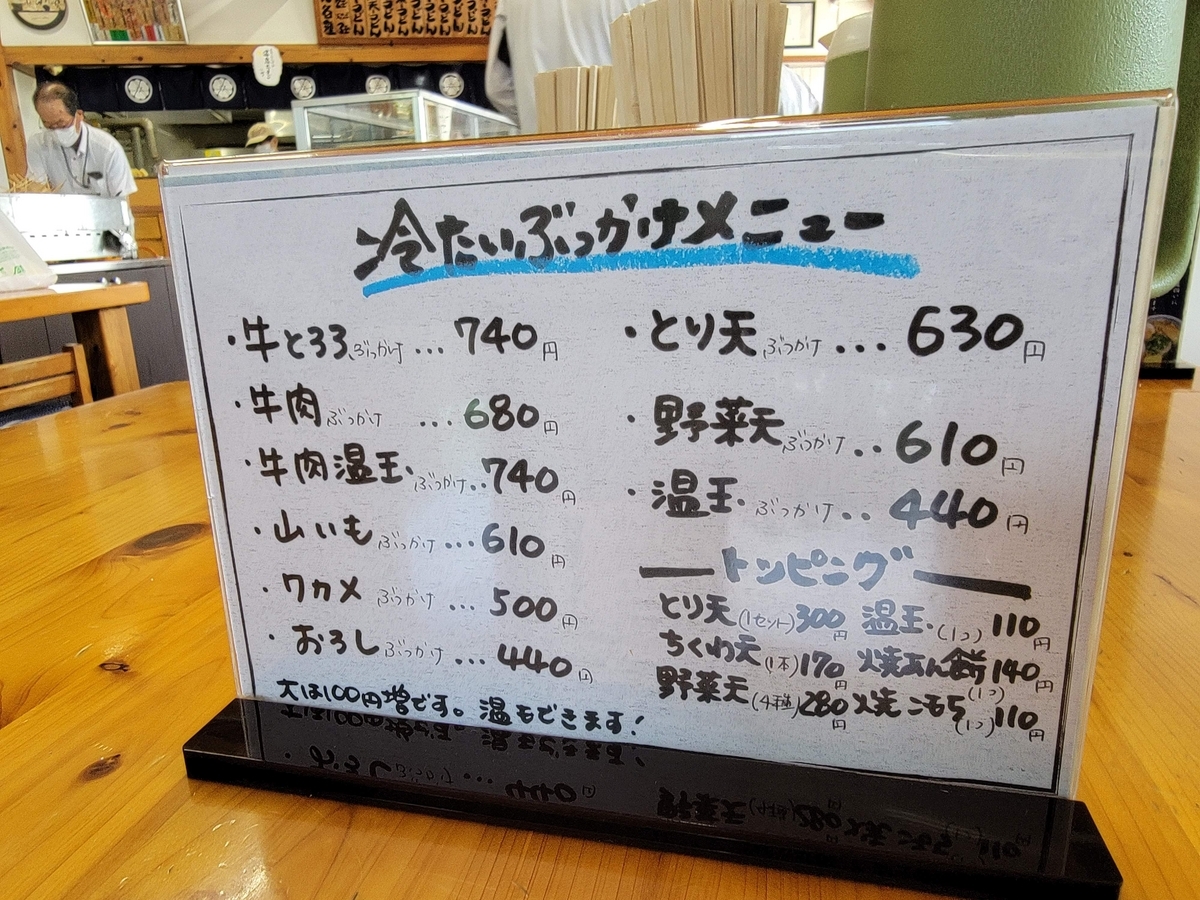 冷たいぶっかけメニュー
・牛とろろぶっかけ...740円
・牛肉ぶっかけ...680円
・牛肉温玉ぶっかけ..740円
・山いもぶっかけ...610円
・ワカメぶっかけ...500円
・おろしぶっかけ...440円
大は100円増です。温もできます!
・とり天ぶっかけ...630円
・野菜天ぶっかけ..610円
・温玉ぶっかけ..440円
トッピング
とり天(1セット)300円 温玉(1コ)110円
ちくわ天(1本)170円 焼あん餅(1コ)140円
野菜天(4種)280円 焼こもち(1コ)110円